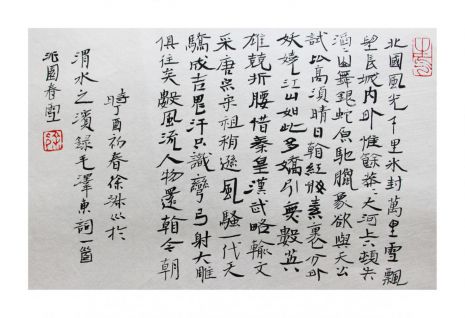 北國風光千里冰封萬里雪飄
望長城內外惟餘莽々大河上下頓失
滔々山舞銀蛇原馳臘象欲與天公
試比高須晴日看紅妝素裹分外
妖嬈江山如此多嬌引無數英
雄競折腰惜秦皇漢武略輸文
采唐宗宋祖稍遜風騷一代天
驕成吉思汗只識彎弓射大雕
俱往矣數風流人物還看今朝
時丁酉初春徐於
渭水之濱錄毛澤東詞一
沁園春雪